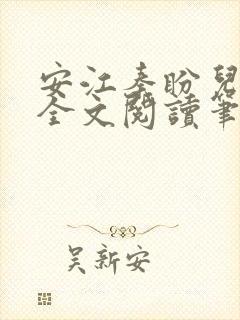 安江秦盼兒
全文閱讀筆
吴新安